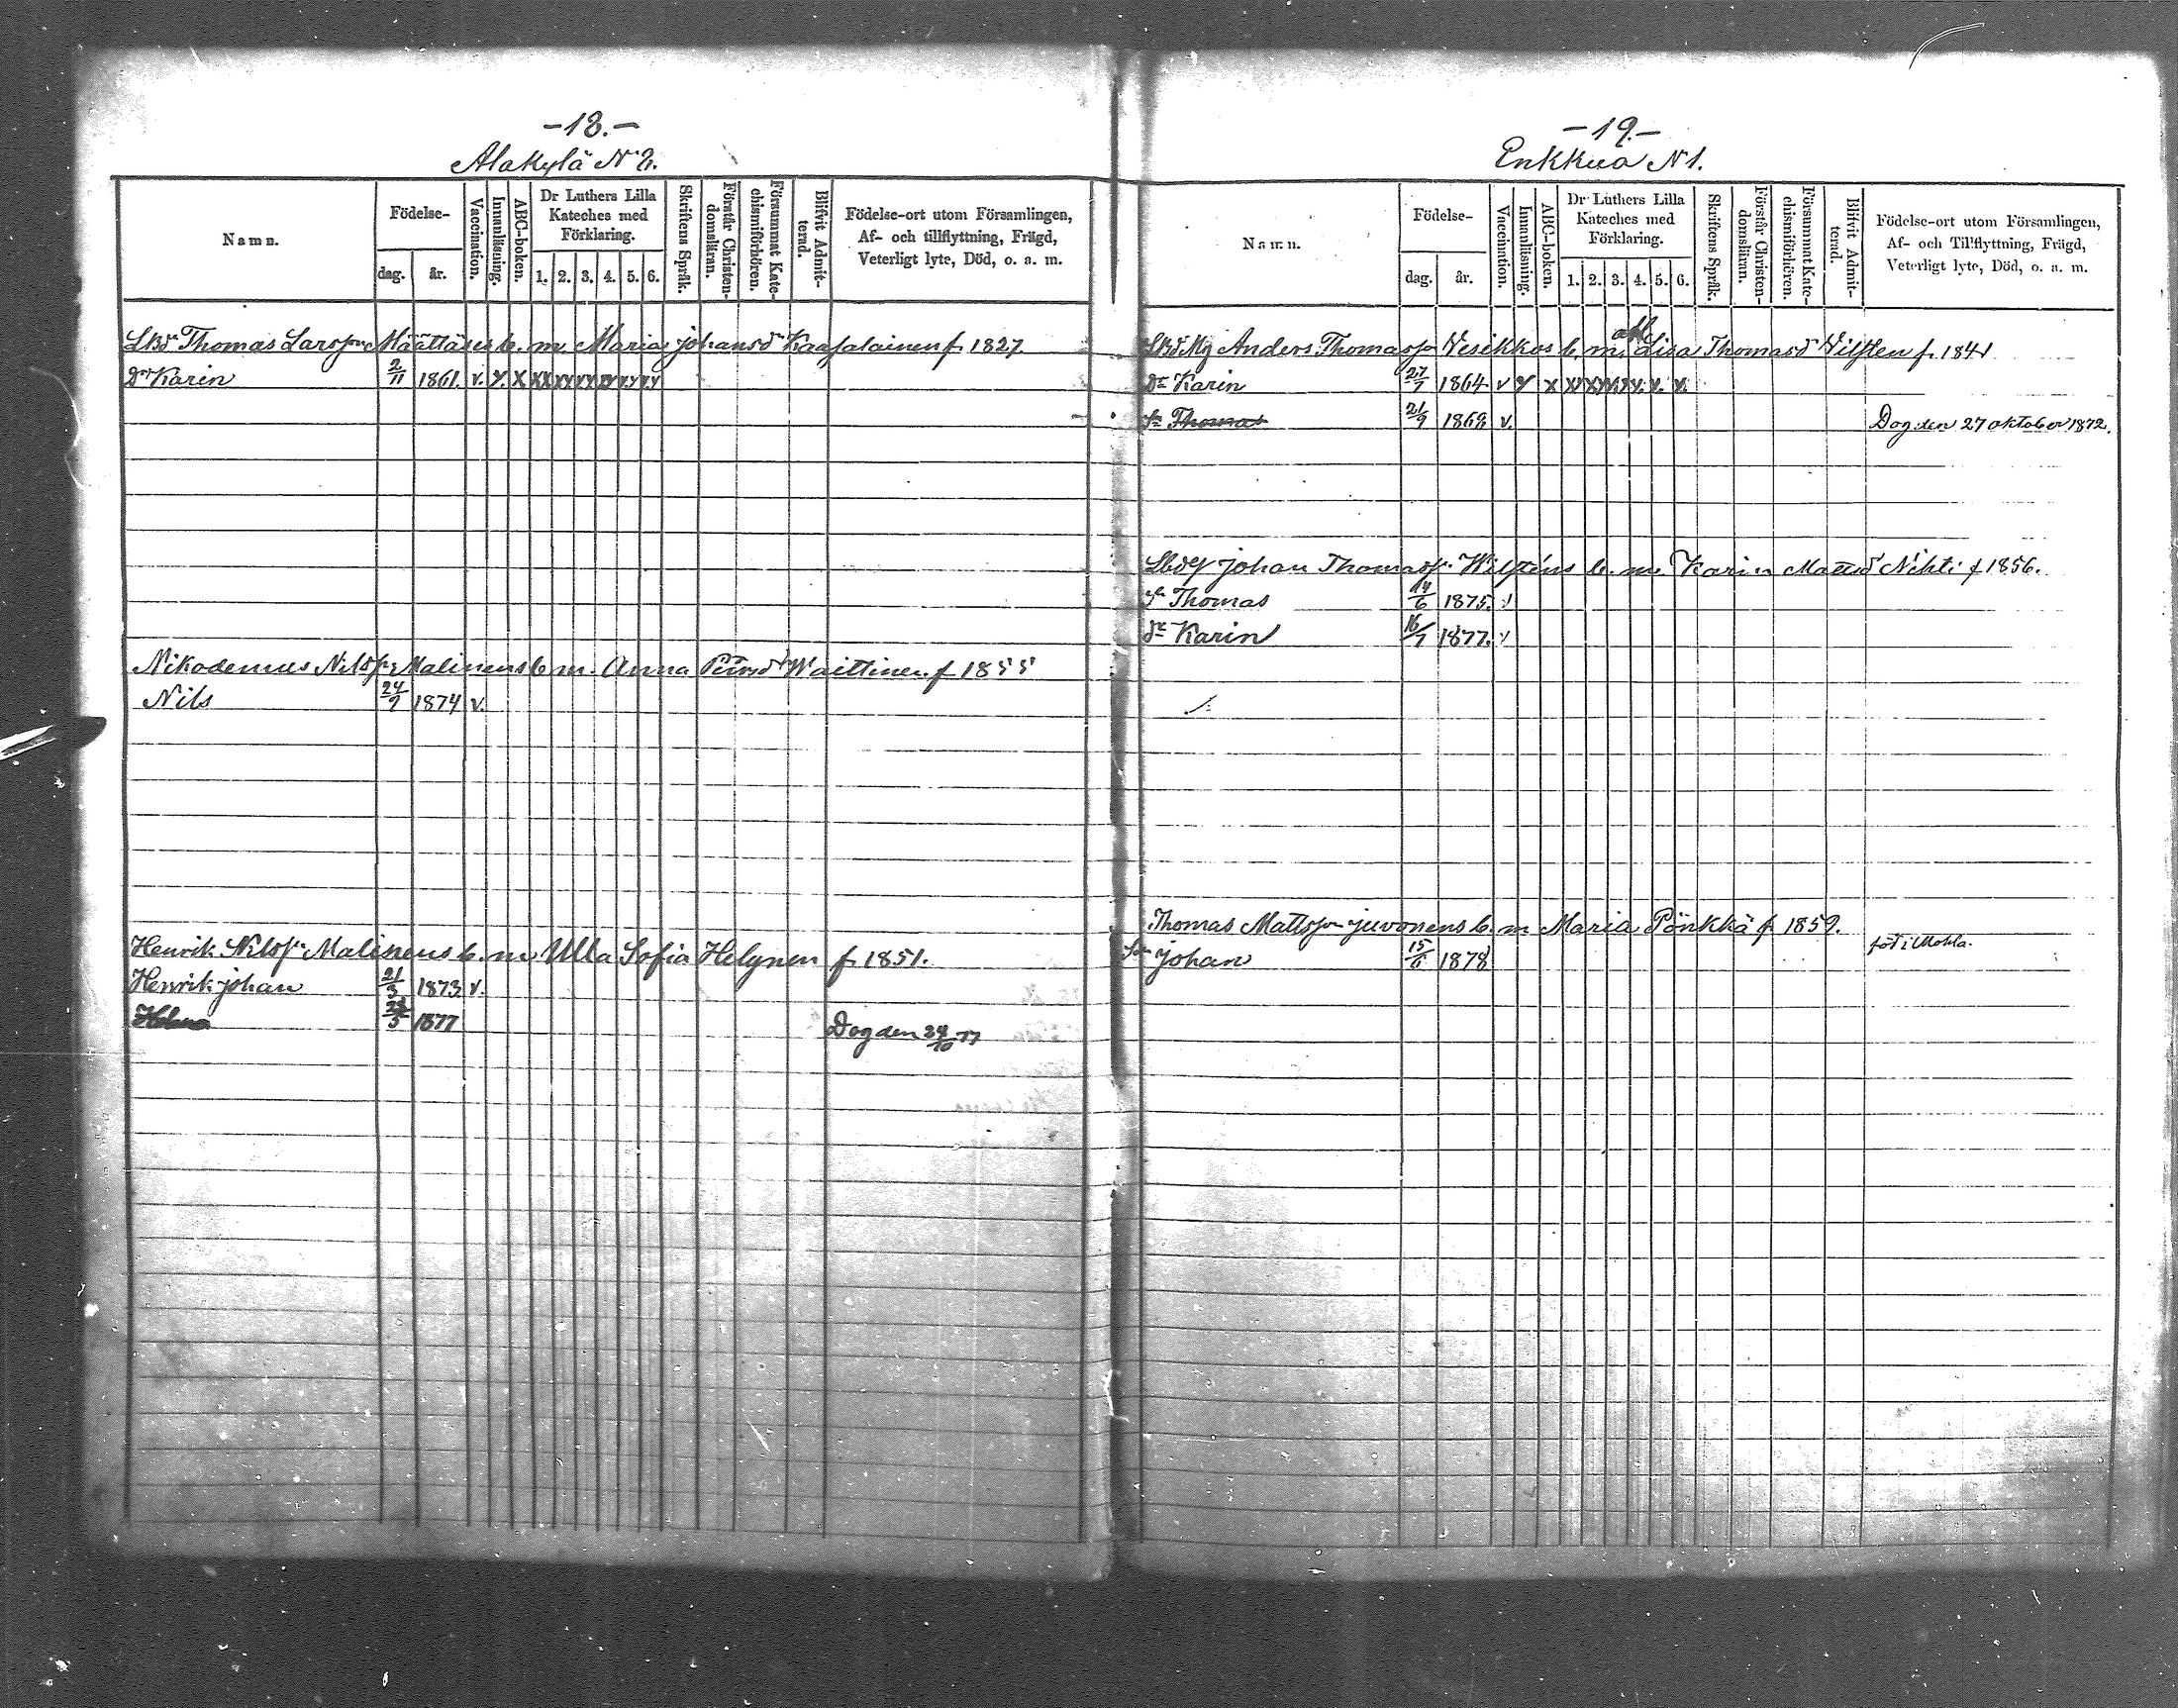 -18.-
Alakylä N 2.
Namn.
Födelse-
dag.
år.
Vaccination.
Innanläsning.
ABC-boken.
Dr Luthers Lilla
Kateches med
Förklaring.
1. 2. 3. 4. 5. 6.
Skriftens Språk.
Förstår Christen-
domsläran.
Försummat Kate-
chismiförhören.
Blifvit Admit-
terad.
Födelse-ort utom Församlingen,
Af- och tillflyttning, Frägd,
Veterligt lyte, Död, o. a. m.
Thomas Larsson Määttänens b. m. Maria Johansdr Kaasalainen f. 1827.
Dr Karin 2/11 1861. v. x x xx xx xx xx v.v v.v
Nikodemus Nilsspn Malinens b. m. Anna Waittinen f 1855
Nils 24/9 1874 v.
Henrik Nilsspn Malinens b. m. Ulla Sofia Helynen f. 1851.
Henrik Johan 21/3 1873 v.
1877 Dog den 24/10 77
-19.-
Enkkua N 1.
Namn.
Födelse-
dag.
år.
Vaccination.
Innanläsning.
ABC-boken.
Dr Luthers Lilla
Kateches med
Förklaring.
1. 2. 3. 4. 5. 6.
Skriftens Språk.
Förstår Christen-
domsläran.
Försummat Kate-
chismiförhören.
Blifvit Admit-
terad.
Födelse-ort utom Församlingen,
Af- och Tillflyttning, Frägd,
Veterligt lyte, Död, o. a. m.
Anders Thomasspn Vesikkos b. m. Lisa Thomasdr Vilsten f. 1841
Dr Karin 27/7 1864 v
Sn Thomas 21/9 1868 v. Dog den 27 oktober 1872.
Johan Thomasspn Wilsténs b. m. Karin Mattsdr Nihti f 1856.
Sn Thomas 14/6 1875. v
dr Karin 16/7 1877. v
Thomas Mattsspn Juvonens b. m Maria Pönkkä f. 1859.
Sn Johan 15/11 1878 född i Mohla.